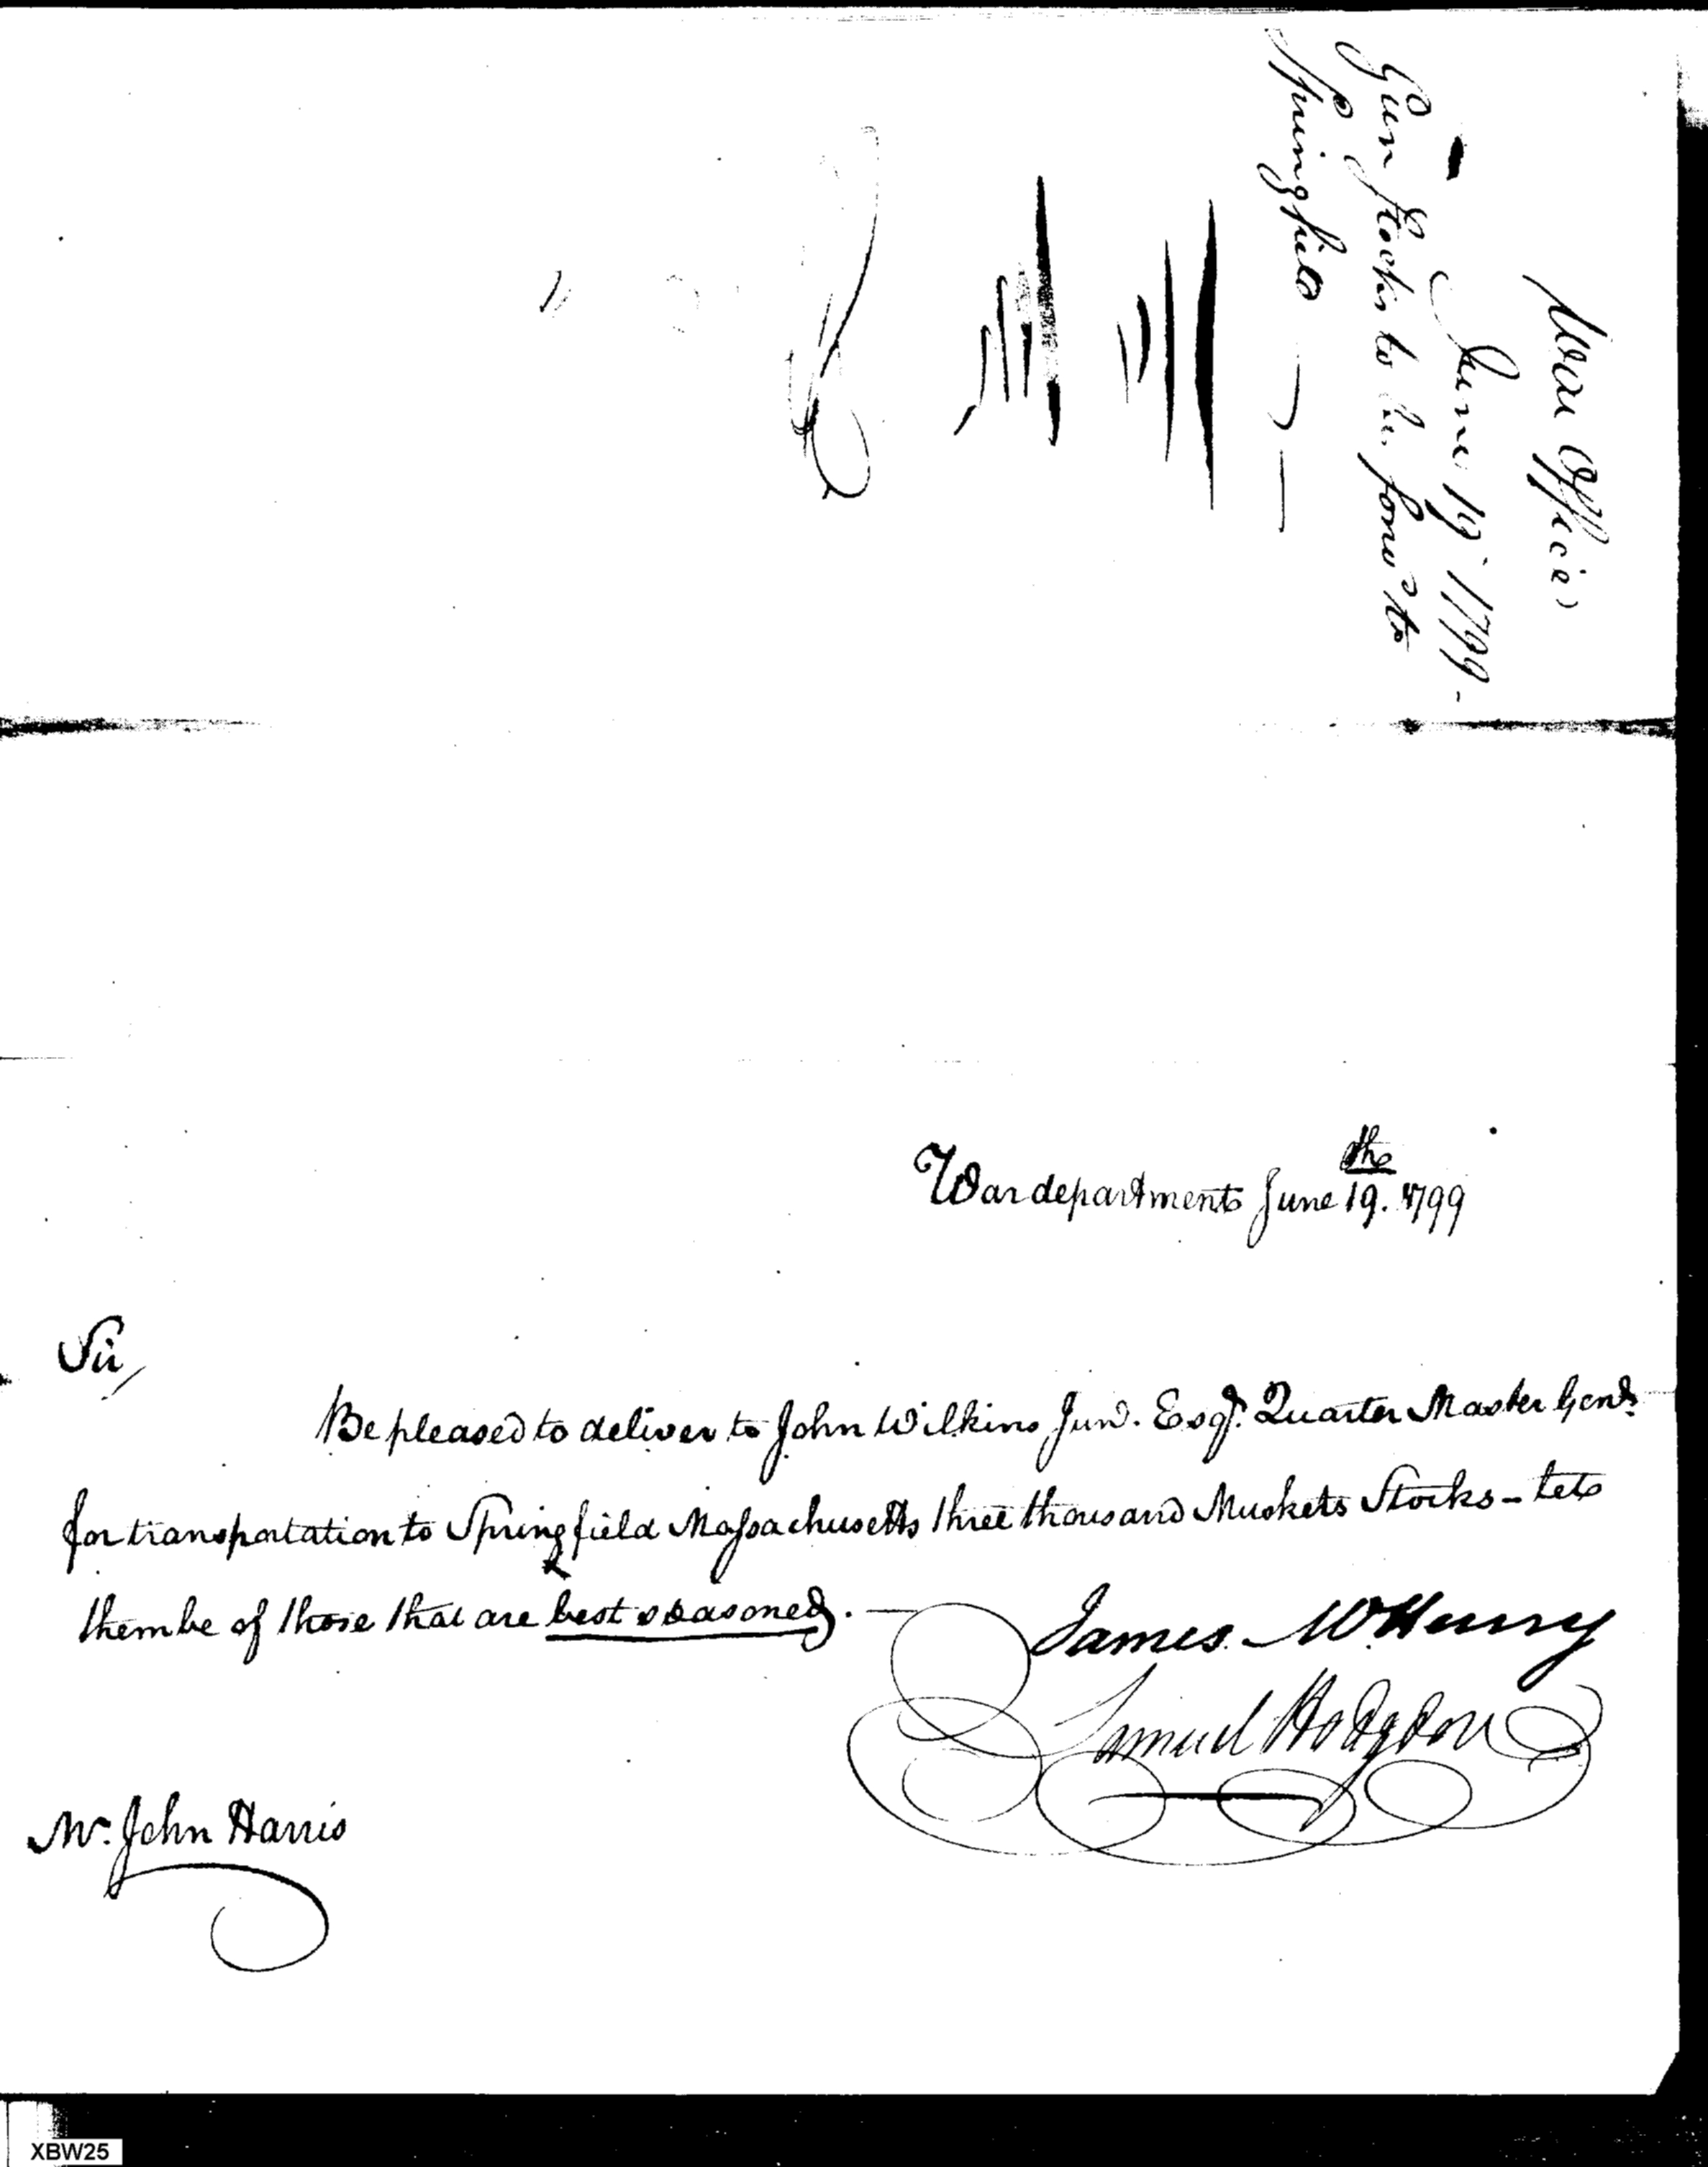 War Office
June 19. 1799 -
Gun Stocks to be forwd to
Springfield
War department June 19.th 1799
Sir,
Be pleased to deliver to John Wilkins Junr. Esqr. Quarter Master Genl.
for transportation to Springfield Massachusetts three thousand Muskets Stocks - let
them be of those that are best seasoned. —
James McHenry
Samuel Hodgdon
Mr. John Harris
XBW25